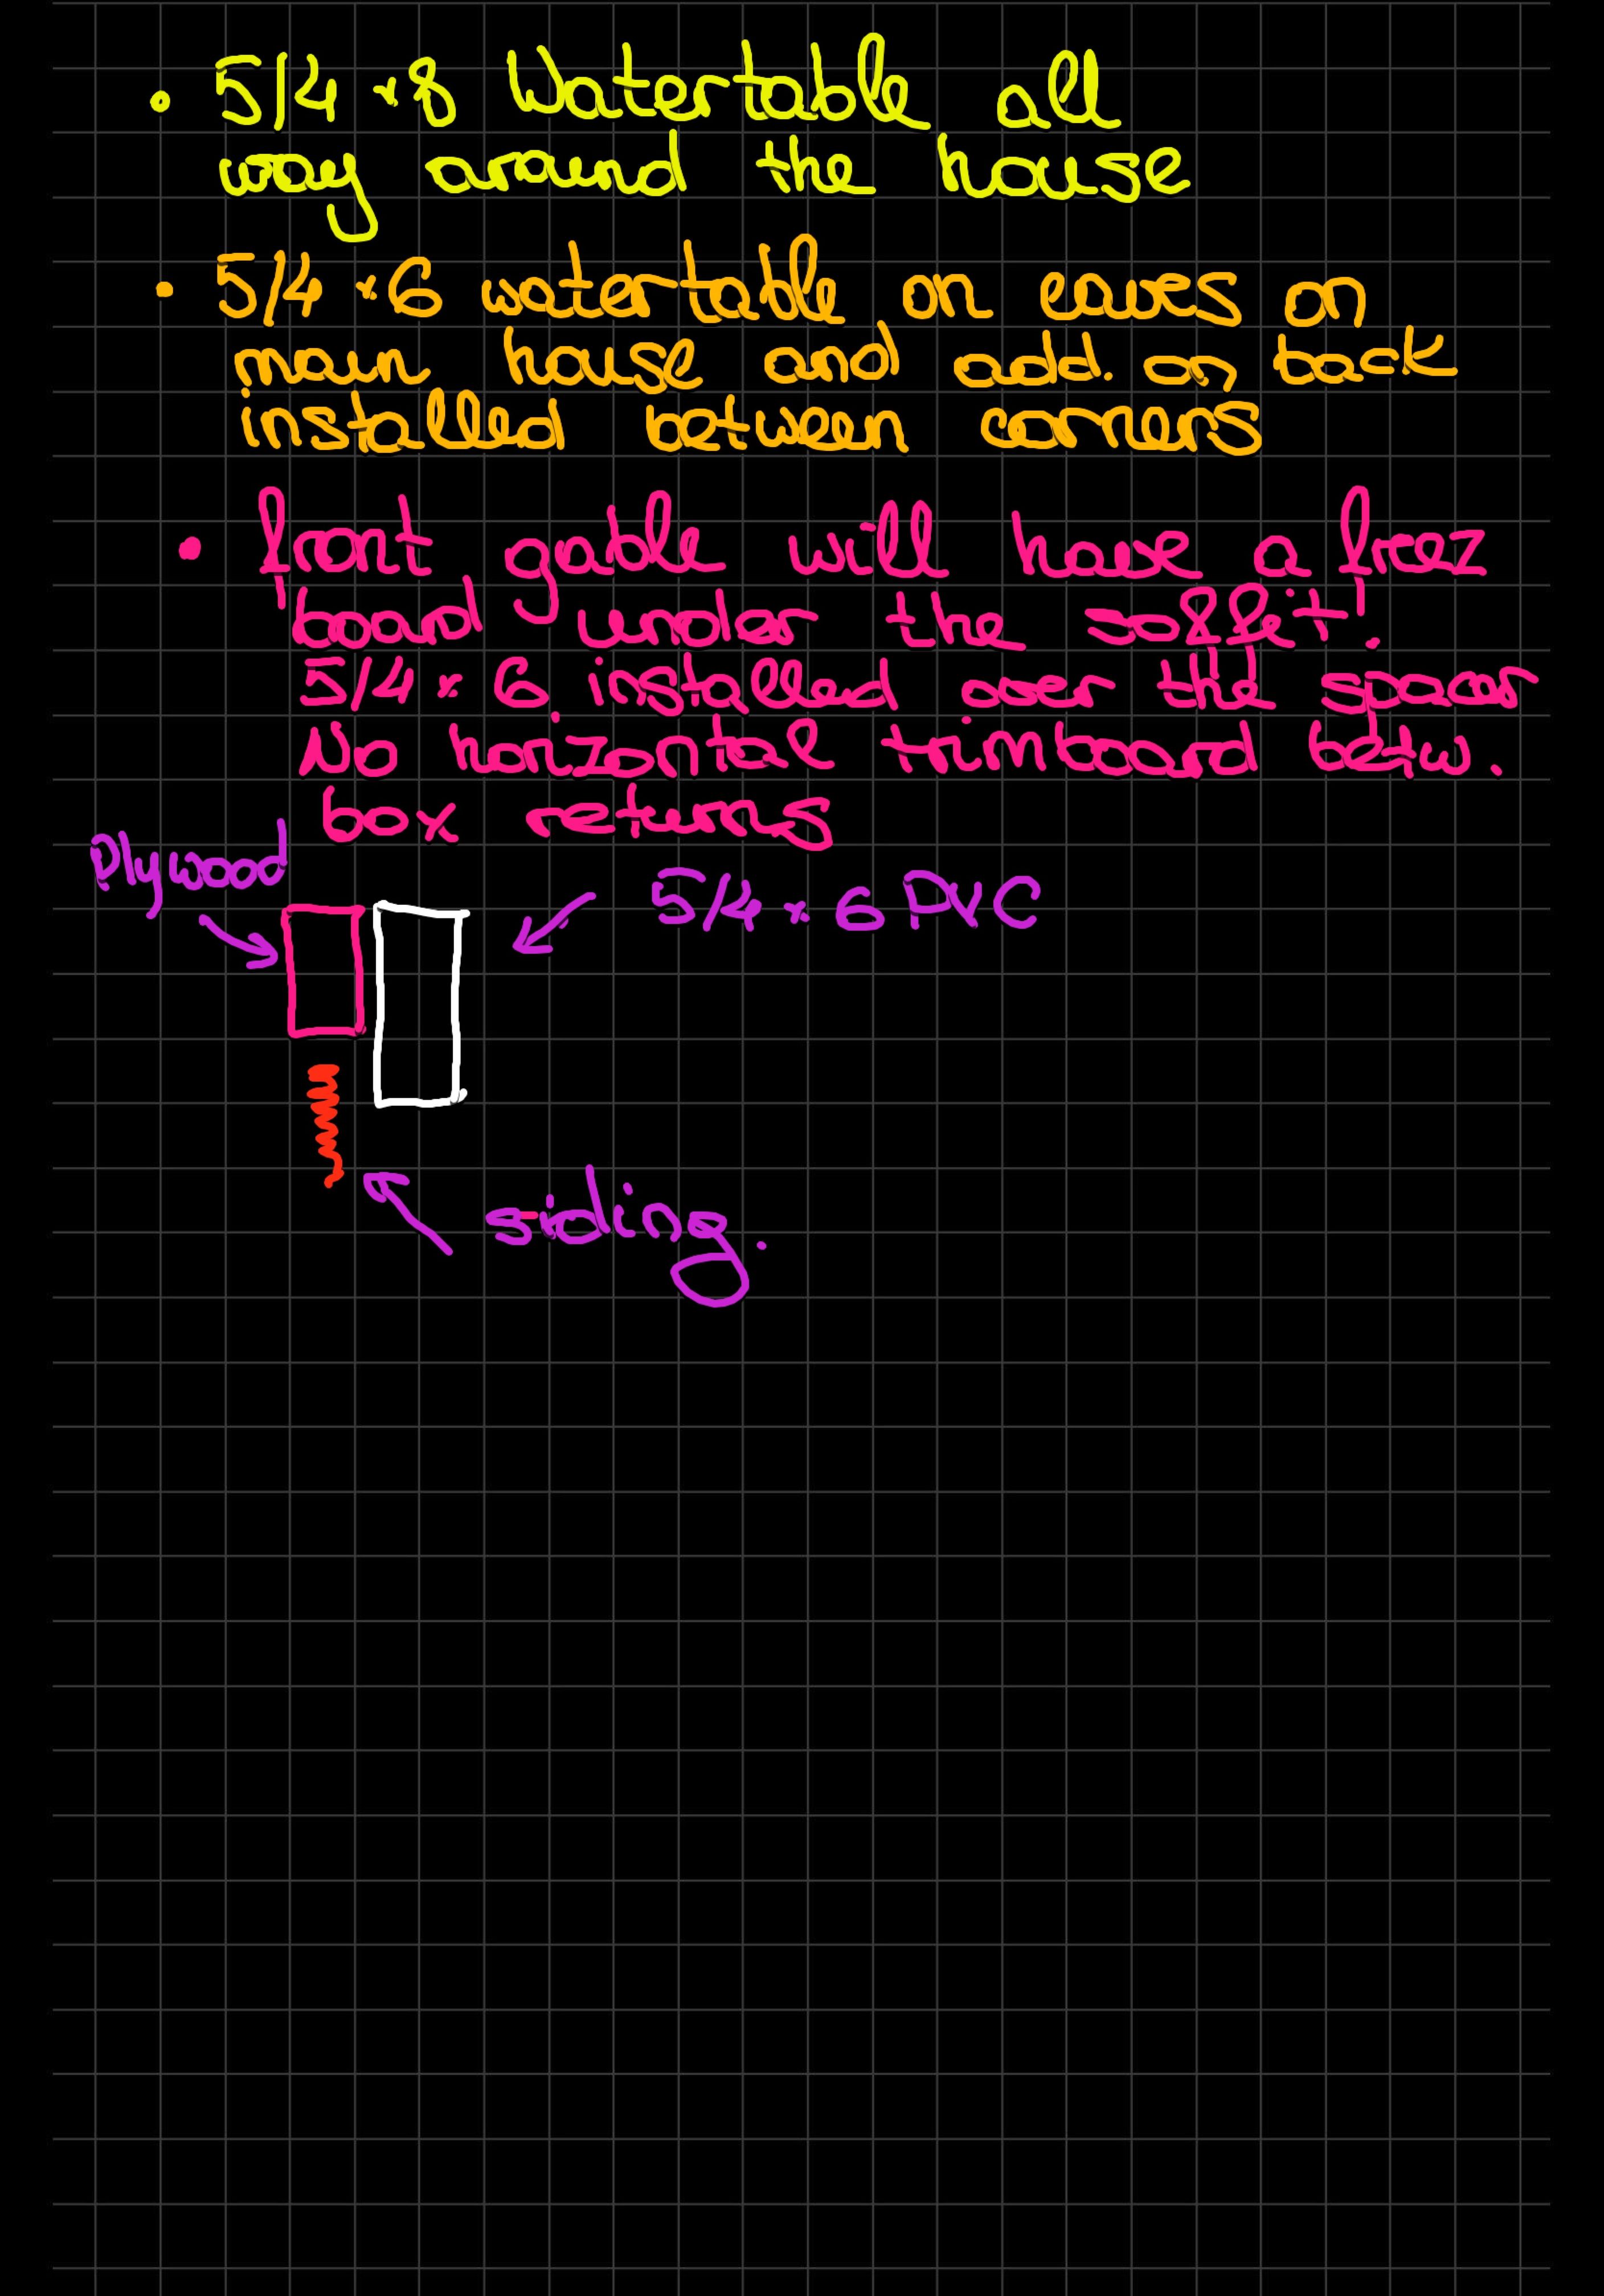 • 5/4 x8 Watertable all
way around the house
• 5/4 x6 watertable on eaves on
main house and add. on back
installed between corners
• front gable will have a freez
board under the soffit!
5/4 x 6 installed over the spacer
No horizontal trimboard betw.
box returns
Plywood
5/4 x 6 PVC
siding.